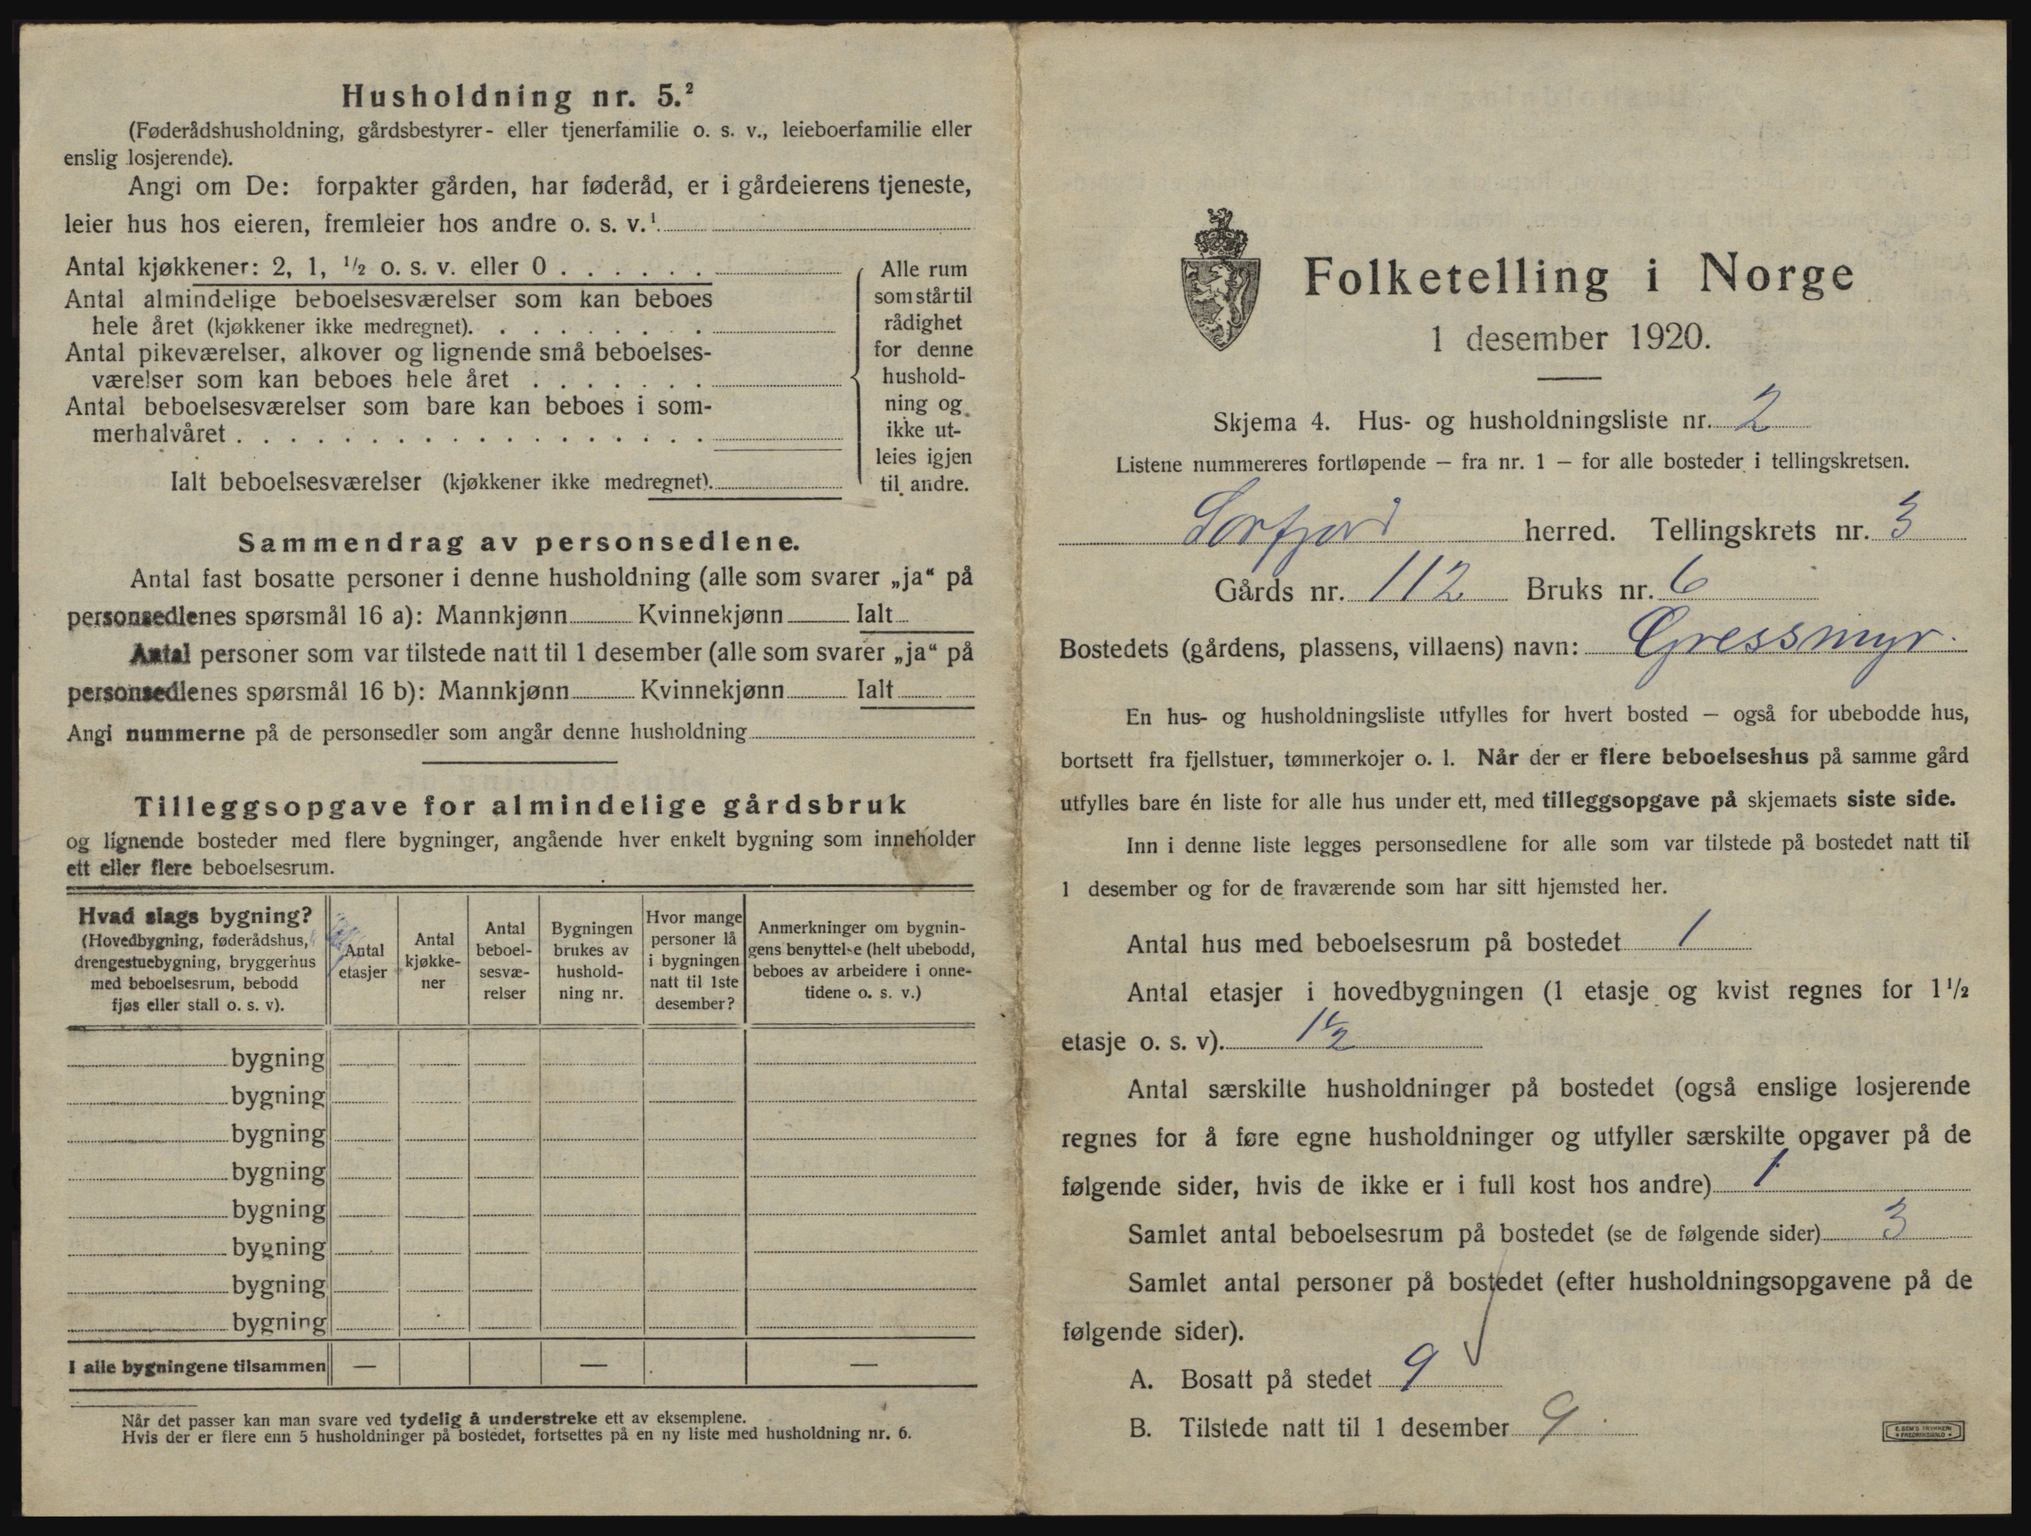 Husholdning nr. 5.²
(Føderådshusholdning, gårdsbestyrer- eller tjenerfamilie o. s. v., leieboerfamilie eller
enslig losjerende).
Angi om De: forpakter gården, har føderåd, er i gårdeierens tjeneste,
leier hus hos eieren, fremleier hos andre o. s. v.¹
Antal kjøkkener: 2, 1, ½ o. s. v. eller 0 . . . . . .
Antal almindelige beboelsesværelser som kan beboes
hele året (kjøkkener ikke medregnet). . . . . . . . .
Antal pikeværelser, alkover og lignende små beboelses-
værelser som kan beboes hele året . . . . . . .
Antal beboelsesværelser som bare kan beboes i som-
merhalvåret . . . . . . . . . . . . . . . . . .
Ialt beboelsesværelser (kjøkkener ikke medregnet).
Alle rum
som står til
rådighet
for denne
hushold-
ning og
ikke ut-
leies igjen
til andre.
Sammendrag av personsedlene.
Antal fast bosatte personer i denne husholdning (alle som svarer „ja“ på
personsedlenes spørsmål 16 a): Mannkjønn Kvinnekjønn Ialt
Antal personer som var tilstede natt til 1 desember (alle som svarer „ja“ på
personsedlenes spørsmål 16 b): Mannkjønn Kvinnekjønn Ialt
Angi nummerne på de personsedler som angår denne husholdning
Tilleggsopgave for almindelige gårdsbruk
og lignende bosteder med flere bygninger, angående hver enkelt bygning som inneholder
ett eller flere beboelsesrum.
Hvad slags bygning?
(Hovedbygning, føderådshus,
drengestuebygning, bryggerhus
med beboelsesrum, bebodd
fjøs eller stall o. s. v).
Antal
etasjer
Antal
kjøkke-
ner
Antal
beboel-
sesvæ-
relser
Bygningen
brukes av
hushold-
ning nr.
Hvor mange
personer lå
i bygningen
natt til 1ste
desember?
Anmerkninger om bygnin-
gens benyttelse (helt ubebodd,
beboes av arbeidere i onne-
tidene o. s. v.)
bygning
bygning
bygning
bygning
bygning
bygning
bygning
bygning
I alle bygningene tilsammen — — —
Når det passer kan man svare ved tydelig å understreke ett av eksemplene.
Hvis der er flere enn 5 husholdninger på bostedet, fortsettes på en ny liste med husholdning nr. 6.
Folketelling i Norge
1 desember 1920.
Skjema 4. Hus- og husholdningsliste nr. 2
Listene nummereres fortløpende — fra nr. 1 — for alle bosteder i tellingskretsen.
Sørfjord herred. Tellingskrets nr. 3
Gårds nr. 112 Bruks nr. 6
Bostedets (gårdens, plassens, villaens) navn: Gressmyr.
En hus- og husholdningsliste utfylles for hvert bosted — også for ubebodde hus,
bortsett fra fjellstuer, tømmerkojer o. l. Når der er flere beboelseshus på samme gård
utfylles bare én liste for alle hus under ett, med tilleggsopgave på skjemaets siste side.
Inn i denne liste legges personsedlene for alle som var tilstede på bostedet natt til
1 desember og for de fraværende som har sitt hjemsted her.
Antal hus med beboelsesrum på bostedet 1
Antal etasjer i hovedbygningen (1 etasje og kvist regnes for 1½
etasje o. s. v). 1½
Antal særskilte husholdninger på bostedet (også enslige losjerende
regnes for å føre egne husholdninger og utfyller særskilte opgaver på de
følgende sider, hvis de ikke er i full kost hos andre) 1
Samlet antal beboelsesrum på bostedet (se de følgende sider) 3
Samlet antal personer på bostedet (efter husholdningsopgavene på de
følgende sider).
A. Bosatt på stedet 9
B. Tilstede natt til 1 desember 9